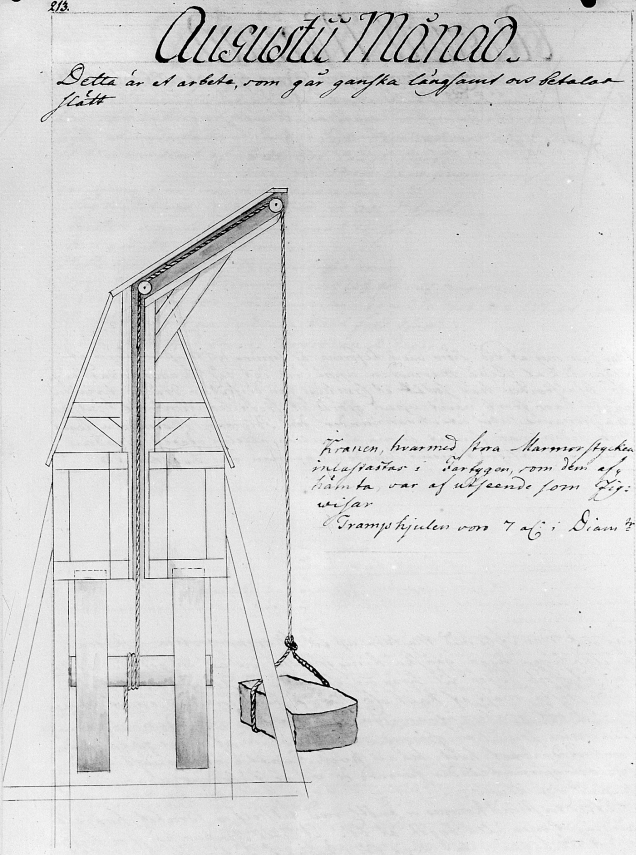 213.
Augustii Månad.
Detta är et arbete, som går ganska långsamt och betalas
slätt
Kranen, hvarmed stora Marmorstycken
inlastastas i Fartygen, som dem af-
hämta, var af utseende som Fig:
wisar
Trampshjulen voro 7 al: i Diamtr